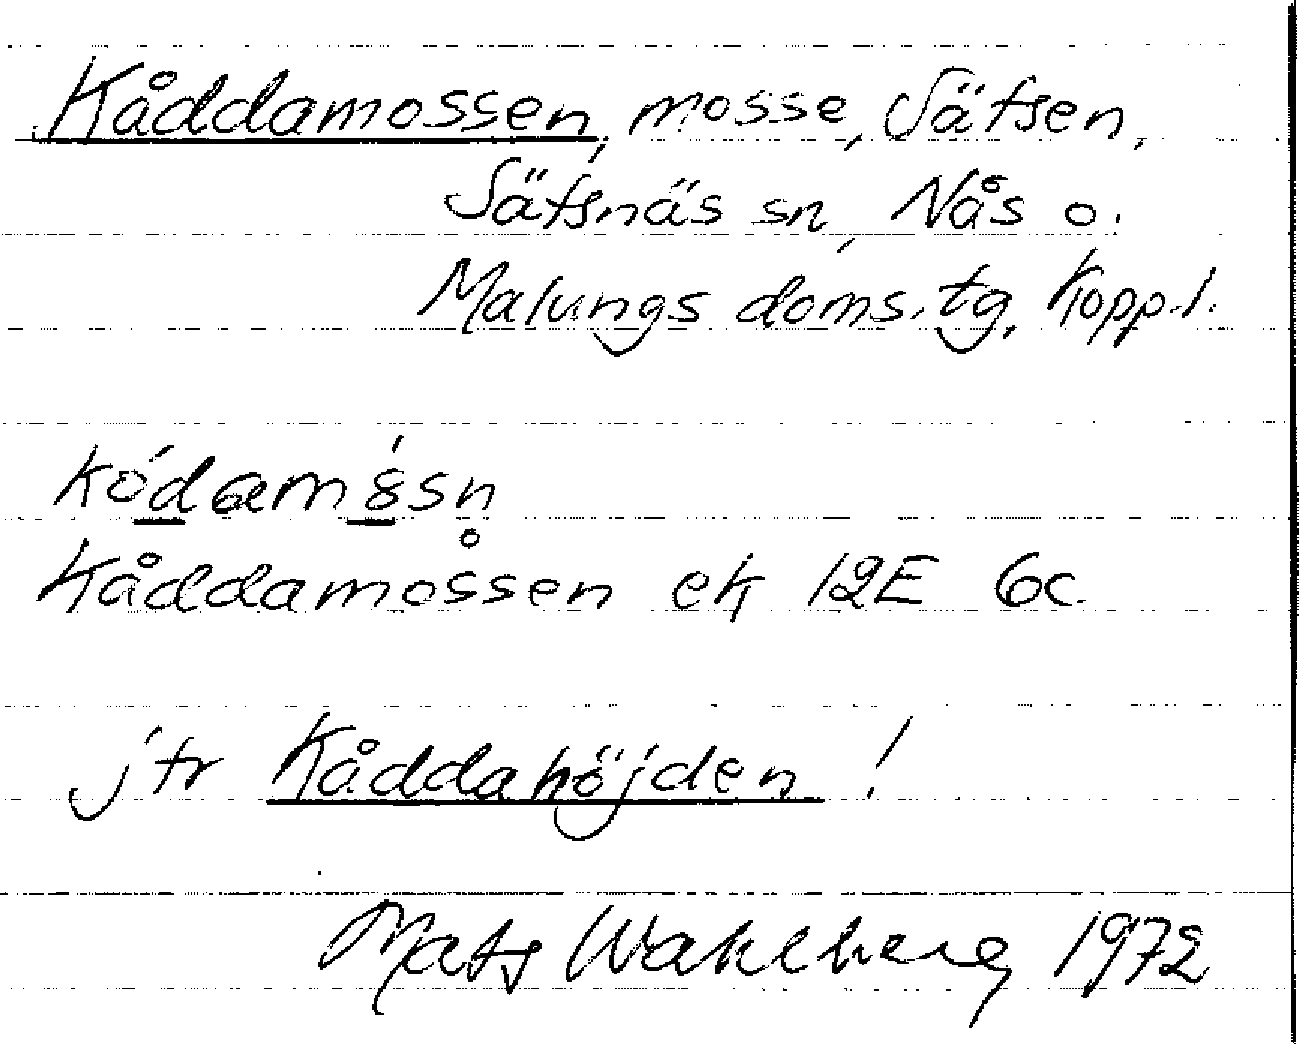 Kåddamossen, mosse, Sätsen,
Sätsnäs sn, Nås o.
Malungs doms.tg, Kopp.l.
Kåddamossen ek 12E 6c
jtr Kåddahöjden !
Mats Wahlberg 1972